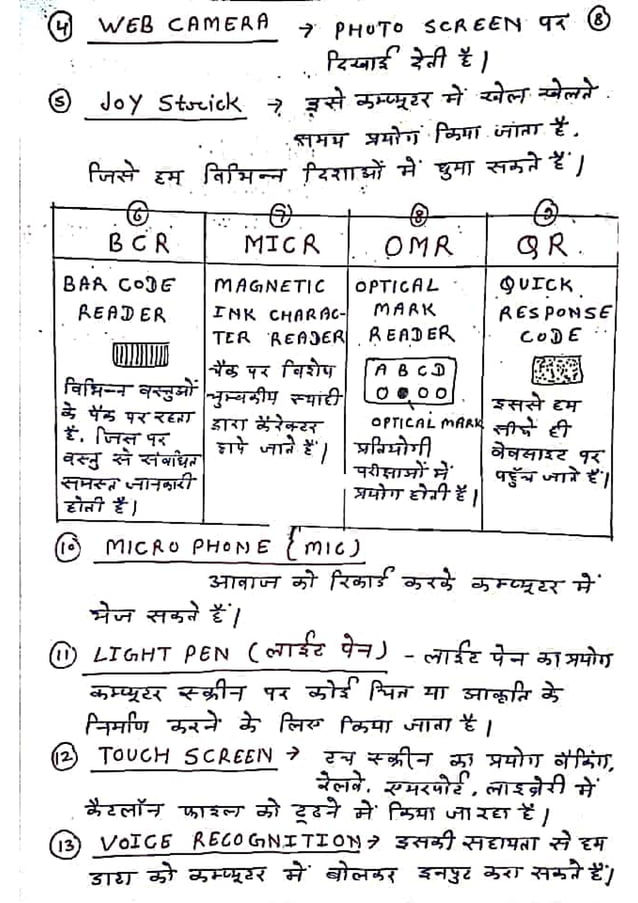 ④ WEB CAMERA → PHOTO SCREEN पर ⑧
दिखाई देती है।
⑤ JOY Strick → इसे कम्प्यूटर में खेल खेलते
समय प्रयोग किया जाता है.
जिसे हम विभिन्न दिशाओं में घुमा सकते हैं।
⑥ ⑦ ⑧ ⑨
BCR MICR OMR QR.
BAR CODE
READER
विभिन्न वस्तुओं
के पैक पर रहता
है. जिस पर
वस्तु से संबंधित
समस्त जानकारी
होती है।
MAGNETIC
INK CHARAC-
TER READER
चैक पर विशेष
चुम्बकीय स्याही
द्वारा कैरेक्टर
छापे जाते हैं।
OPTICAL
MARK
READER
A B C D
OPTICAL MARK
प्रतियोगी
परीक्षाओं में
प्रयोग होती है।
QUICK
RESPONSE
CODE
इससे हम
सीधे ही
वेबसाइट पर
पहुँच जाते हैं।
⑩ MICRO PHONE {MIC)
आवाज को रिकार्ड करके कम्प्यूटर में
भेज सकते हैं।
⑪ LIGHT PEN (लाईट पेन) - लाईट पेन का प्रयोग
कम्प्यूटर स्क्रीन पर कोई चित्र या आकृति के
निर्माण करने के लिए किया जाता है।
⑫ TOUCH SCREEN → टच स्क्रीन का प्रयोग बैंकिंग,
रेलवे, एयरपोर्ट, लाइब्रेरी में
कैटलॉन फाइल को ढूढने में किया जा रहा है।
⑬ VOICE RECOGNITION → इसकी सहायता से हम
डाटा को कम्प्यूटर में बोलकर इनपुट करा सकते हैं।